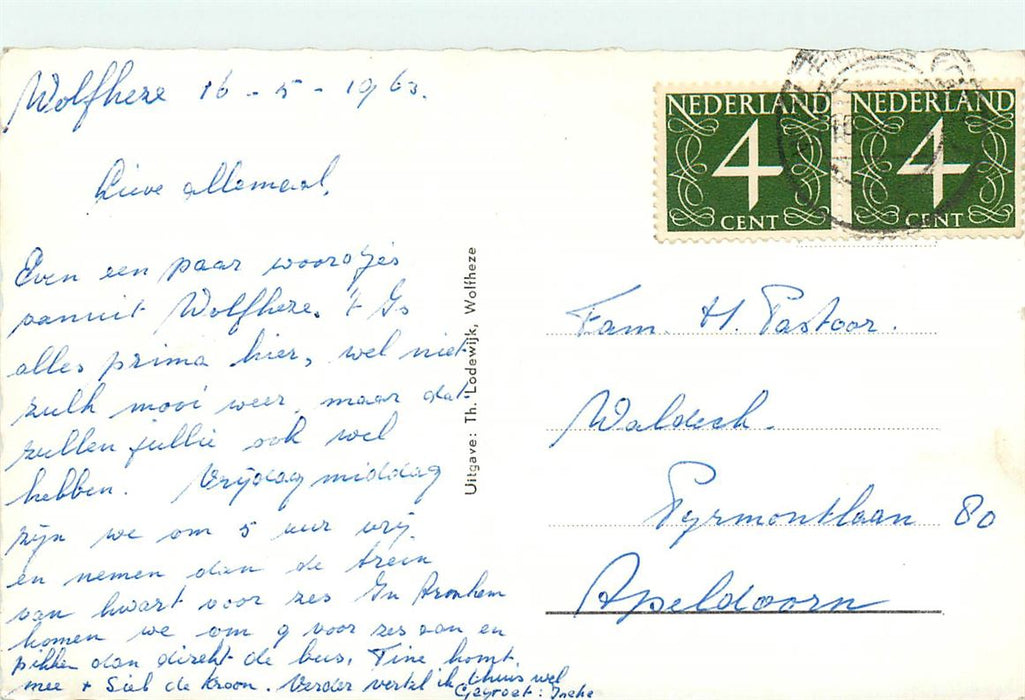 Wolfheze 16 - 5 - 1963.
Lieve allemaal,
Even een paar woordjes
vanuit Wolfheze. 't Is
alles prima hier, wel niet
zulk mooi weer, maar dat
zullen jullie ook wel
hebben. Vrijdag middag
zijn we om 5 uur vrij
en nemen dan de trein
van kwart voor zes In Arnhem
komen we om 9 voor zes aan en
pikken dan direkt de bus. Tine komt
mee + Sieb de Kroon. Verder vertel ik thuis wel
Gegroet: Ineke
Uitgave: Th. Lodewijk, Wolfheze
NEDERLAND
4
CENT
NEDERLAND
4
CENT
Fam. H. Pastoor.
Waldeck-
Pyrmontlaan 80
Apeldoorn